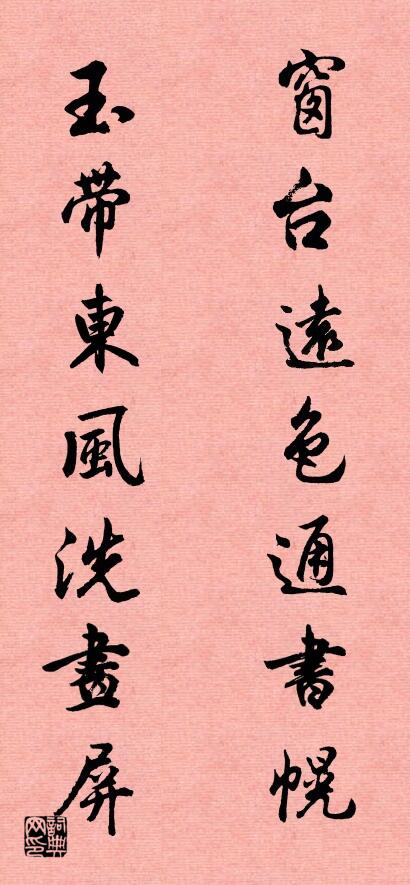 窗台遠色通書幌
玉帶東風洗畫屏
詞典網印